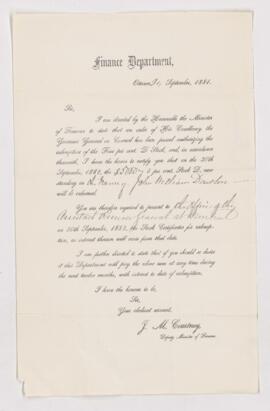 Finance Department,
Ottawa, September, 1881.
Sir,
I am directed by the Honorable the Minister
of Finance to state that an order of His Excellency the
Governor General in Council has been passed authorizing the
redemption of the Five per cent. D Stock, and, in accordance
therewith, I have the honor to notify you that on the 30th
September, 1882, the $ per cent. Stock D, now
standing in the name of John William Dawson
will be redeemed.
You are therefore required to present to the Office of the
Assistant Receiver General at Montreal
on 30th September, 1882, the Stock Certificates for redemp-
tion, as interest thereon will cease from that date.
I am further directed to state that if you should so desire
it this Department will pay the above sum at any time during
the next twelve months, with interest to date of redemption.
I have the honour to be,
Sir,
Your obedient servant,
J. M. Courtney,
Deputy Minister of Finance.